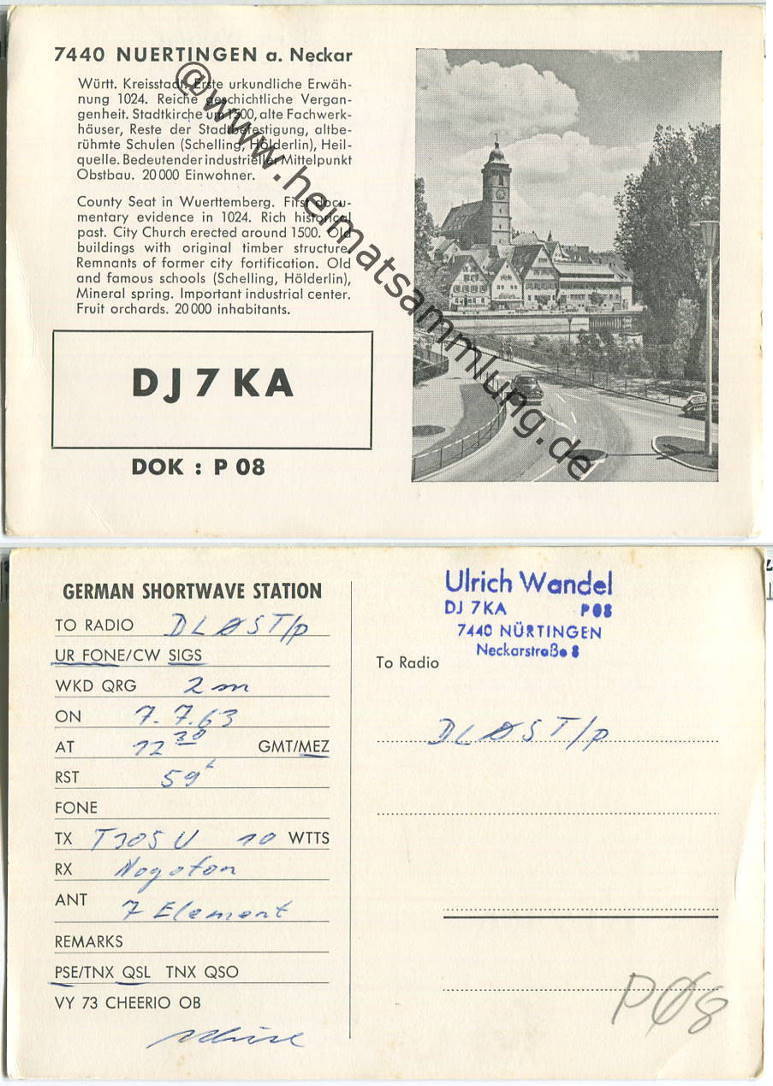 7440 NUERTINGEN a. Neckar
Württ. Kreisstadt. Erste urkundliche Erwäh-
nung 1024. Reiche geschichtliche Vergan-
genheit. Stadtkirche um 1500, alte Fachwerk-
häuser, Reste der Stadtbefestigung, altbe-
rühmte Schulen (Schelling, Hölderlin), Heil-
quelle. Bedeutender industrieller Mittelpunkt
Obstbau. 20 000 Einwohner.
County Seat in Wuerttemberg. First docu-
mentary evidence in 1024. Rich historical
past. City Church erected around 1500. Old
buildings with original timber structure.
Remnants of former city fortification. Old
and famous schools (Schelling, Hölderlin),
Mineral spring. Important industrial center.
Fruit orchards. 20 000 inhabitants.
DJ 7 KA
DOK : P 08
@www.heimatsammlung.de
GERMAN SHORTWAVE STATION
TO RADIO DLØST/p
UR FONE/CW SIGS
WKD QRG 2 m
ON 7.7.63
AT 12 30 GMT/MEZ
RST 59
FONE
TX T305U 10 WTTS
RX Nogoton
ANT 7 Element
REMARKS
PSE/TNX QSL TNX QSO
VY 73 CHEERIO OB
Ulrich Wandel
DJ 7KA P08
7440 NÜRTINGEN
Neckarstraße 8
To Radio
DLØST/p
PØ8